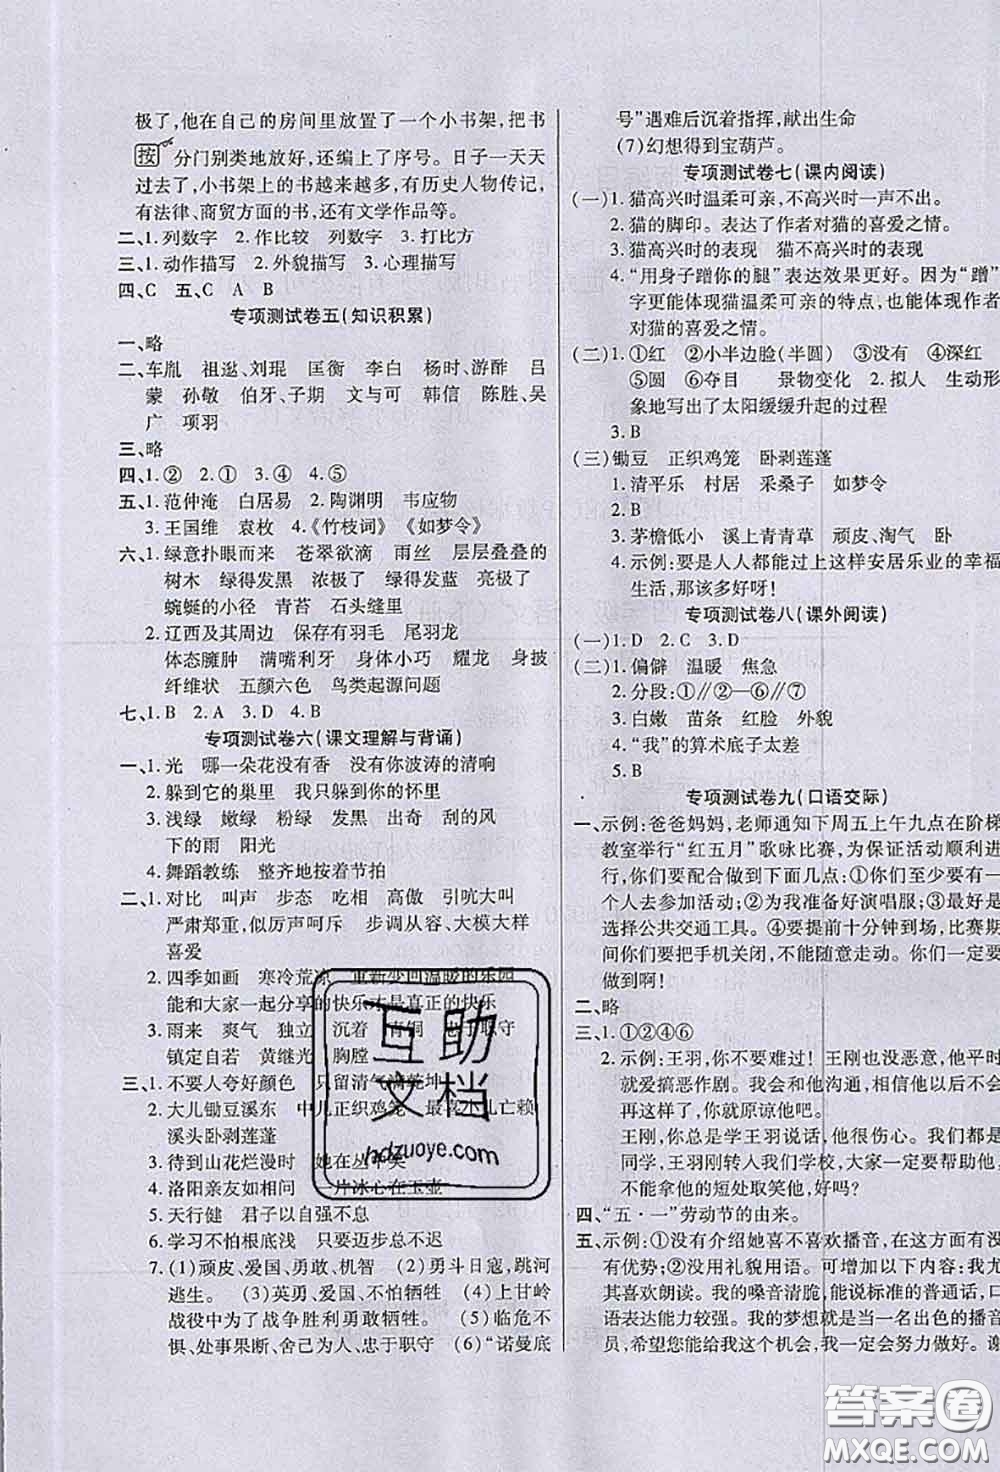 极了,他在自己的房间里放置了一个小书架,把书
按 分门别类地放好,还编上了序号。日子一天天
过去了,小书架上的书越来越多,有历史人物传记,
有法律、商贸方面的书,还有文学作品等。
二、1. 列数字 2. 作比较 列数字 3. 打比方
三、1. 动作描写 2. 外貌描写 3. 心理描写
四、C 五、C A B
专项测试卷五(知识积累)
一、略
二、车胤 祖逖、刘琨 匡衡 李白 杨时、游酢 吕
蒙 孙敬 伯牙、子期 文与可 韩信 陈胜、吴
广 项羽
三、略
四、1. ② 2. ① 3. ④ 4. ⑤
五、1. 范仲淹 白居易 2. 陶渊明 韦应物
3. 王国维 袁枚 4.《竹枝词》《如梦令》
六、1. 绿意扑眼而来 苍翠欲滴 雨丝 层层叠叠的
树木 绿得发黑 浓绿 绿得发蓝 亮极了
蜿蜒的小径 青苔 石头缝里
2. 辽西及其周边地区 保存有羽毛 尾羽龙
体态臃肿 满嘴利牙 身体小巧 耀龙 身披
纤维状 五颜六色 鸟类起源问题
七、1. B 2. A 3. D 4. B
专项测试卷六(课文理解与背诵)
一、1. 光 哪一朵花没有香 没有你波涛的清响
2. 躲到它的巢里 我只躲到你的怀里
3. 浅绿 嫩绿 粉绿 发黑 出奇 刮的风
下的雨 阳光
4. 舞蹈教练 整齐地按着节拍
二、1. 对比 叫声 步态 吃相 高傲 引吭大叫
严肃郑重,似厉声呵斥 步调从容、大模大样
喜爱
2. 四季如画 寒冷荒凉 重新夺回温暖的乐园
能和大家一起分享的快乐才是真正的快乐
3. 雨来 爽气 独立 沉着 青铜 忠于职守
镇定自若 黄继光 胸膛
三、1. 不要人夸好颜色 只留清气满乾坤
2. 大儿锄豆溪东 中儿正织鸡笼 最喜小儿亡赖
溪头卧剥莲蓬
3. 待到山花烂漫时 她在丛中笑
4. 洛阳亲友如相问 一片冰心在玉壶
5. 天行健 君子以自强不息
6. 学习不怕根底浅 只要迈步总不迟
7. (1)顽皮、爱国、勇敢、机智 (2)勇斗日寇,跳河
逃生。 (3)英勇、爱国、不怕牺牲 (4)上甘岭
战役中为了战争胜利勇敢牺牲。 (5)临危不
惧、处事果断、舍己为人、忠于职守 (6)“诺曼底
号”遇难后沉着指挥,献出生命
(7)幻想得到宝葫芦。
专项测试卷七(课内阅读)
(一)1. 猫高兴时温柔可亲,不高兴时一声不出。
2. 猫的脚印。表达了作者对猫的喜爱之情。
3. 猫高兴时的表现 猫不高兴时的表现
4. “用身子蹭你的腿”表达效果更好。因为“蹭”
字更能体现猫温柔可亲的特点,也能体现作者
对猫的喜爱之情。
(二)1. ①红 ②小半边脸(半圆) ③没有 ④深红
⑤圆 ⑥夺目 景物变化 2. 拟人 生动形
象地写出了太阳缓缓升起的过程
3. B
(三)锄豆 正织鸡笼 卧剥莲蓬
1. 清平乐 村居 采桑子 如梦令
2. B
3. 茅檐低小 溪上青青草 顽皮、淘气 卧
4. 示例:要是人人都能过上这样安居乐业的幸福
生活,那该多好呀!
专项测试卷八(课外阅读)
(一)1. D 2. C 3. D
(二)1. 偏僻 温暖 焦急
2. 分段:①∥②—⑥∥⑦
3. 白嫩 苗条 红脸 外貌
4. “我”的算术底子太差
5. B
专项测试卷九(口语交际)
一、示例:爸爸妈妈,老师通知下周五上午九点在阶梯
教室举行“红五月”歌咏比赛,为保证活动顺利进
行,你们要配合做到下面几点:①你们至少有一
个人去参加活动;②为我准备好演唱服;③最好是
选择公共交通工具。④要提前十分钟到场,比赛期
间你们要把手机关闭,不能随意走动。你们一定要
做到啊!
二、略
三、1. ①②④⑥
2. 示例:王羽,你不要难过!王刚也没恶意,他平时
就爱搞恶作剧。我们和他沟通,相信他以后不会
再这样了,你就原谅他吧。
王刚,你总是学王羽说话,他很伤心。我们都是
同学,王羽刚转入我们学校,大家一定要帮助他,
不能拿他的短处取笑他,好吗?
四、“五·一”劳动节的由来。
五、示例:①没有介绍她喜不喜欢播音,在播音方面有没
有优势;②没用礼貌用语。可增加以下内容:我尤
其喜欢朗读。我的嗓音清脆,能说标准的普通话,口
语表达能力较强。我的梦想就是当一名出色的播音
员,希望您能给我这个机会,我一定会努力做好。谢
互助
文档
hdzuoye.com
答案圈
MXQE.COM